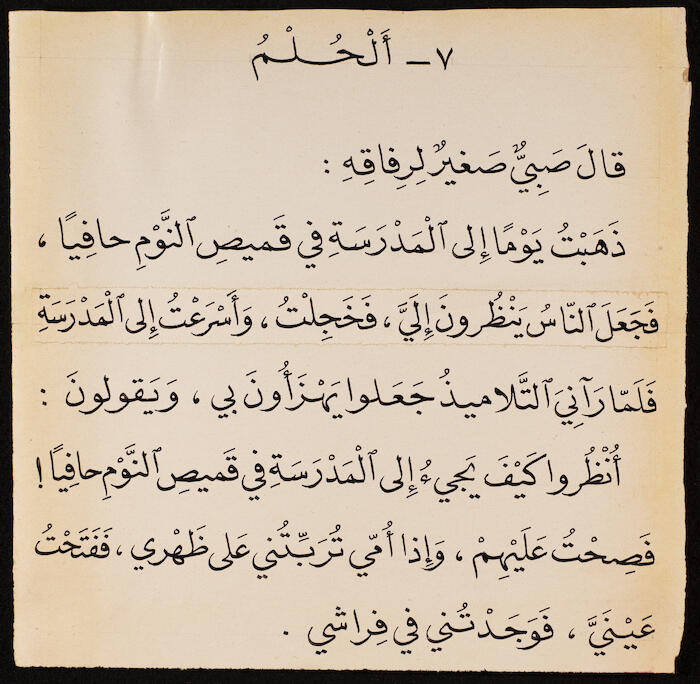 ٧ـ أَلْحُـلْـمُ
قالَ صَبِيٌّ صَغيرٌ لِرِفاقِهِ :
ذَهَبْتُ يَوْمًا إِلى ٱلْمَدْرَسَةِ في قَميصِ ٱلنَّوْمِ حافِيًا ،
فَجَعَلَ ٱلنّاسُ يَنْظُرونَ إِلَيَّ ، فَخَجِلْتُ ، وَأَسْرَعْتُ إِلى ٱلْمَدْرَسَةِ
فَلَمّا رَآنِيَ ٱلتَّلاميذُ جَعَلوا يَهْزَأُونَ بي ، وَيَقولونَ :
أُنْظُروا كَيْفَ يَجيءُ إِلى ٱلْمَدْرَسَةِ في قَميصِ ٱلنَّوْمِ حافِيًا !
فَصِحْتُ عَلَيْهِمْ ، وَإِذا أُمّي تُرَبِّتُني عَلى ظَهْري ، فَفَتَحْتُ
عَيْنَيَّ ، فَوَجَدْتُني في فِراشي .